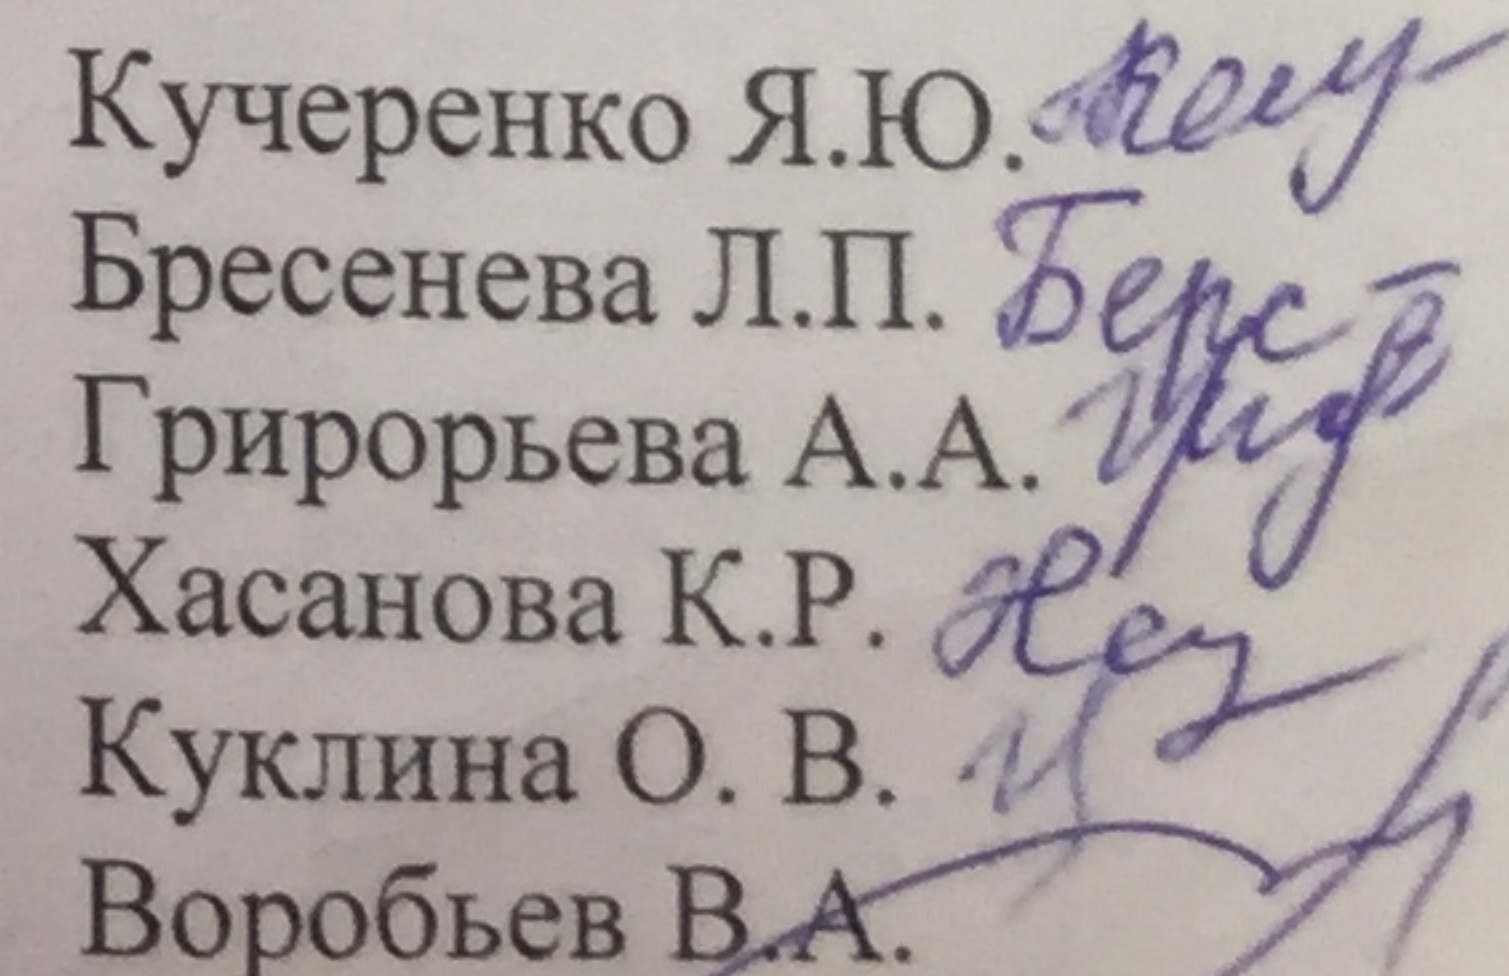 Кучеренко Я.Ю.
Бресенева Л.П. Берс
Грирорьева А.А.
Хасанова К.Р.
Куклина О. В.
Воробьев В.А.